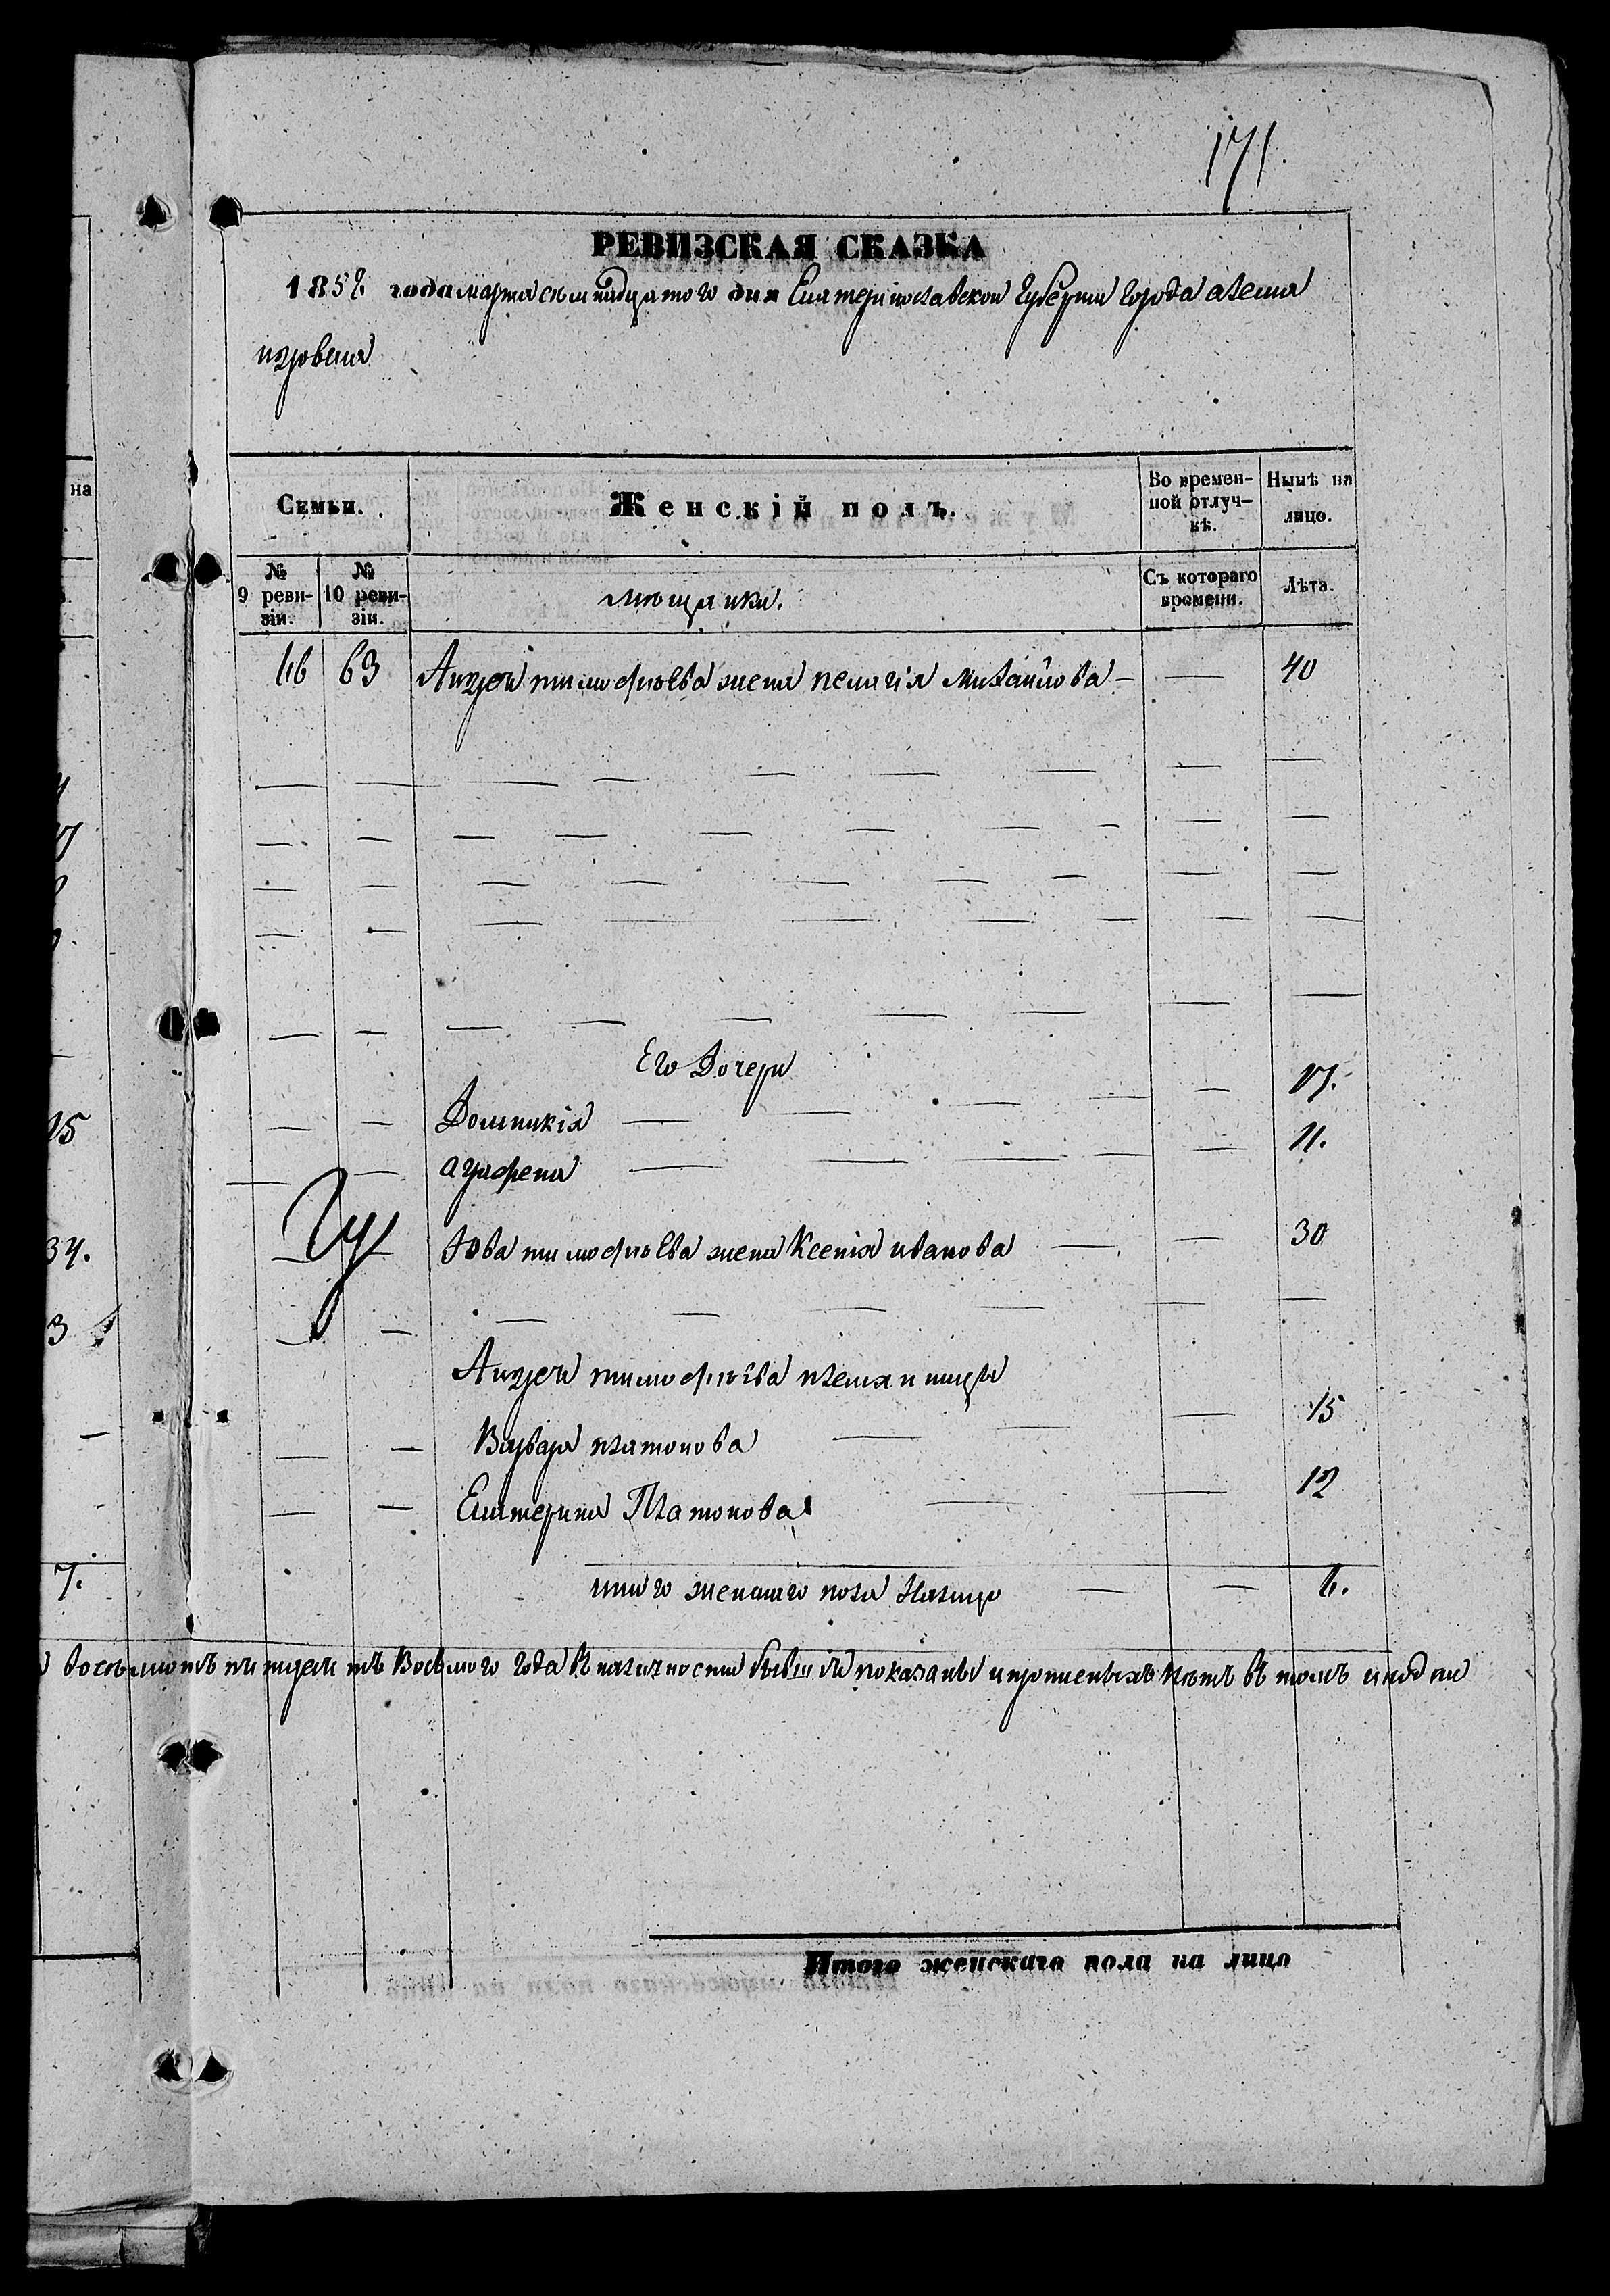 171.
РЕВИЗСКАЯ СКАЗКА
1858 года марта семнадцатого дня Екатеринославской Губернии города алекса
ндровска
на
Семьи.
Женскій полъ.
Во времен-
ной отлуч-
кѣ.
Нынѣ на
лицо.
№
9 реви-
зіи.
№
10 реви-
зіи.
мещанки.
Съ котораго
времени.
Лѣта.
63 Андрея тимофѣева жена пелагія михайлова — — 40
Его Дочери
Домникія — 17.
аграфена — 11.
15
34.
Іова тимофѣева жена Ксенія иванова — — 30
3
Андрея тимофѣева племянницы
Варвара платонова — — 15
Екатерина Платонова — — 12
7.
итого женскаго пола налицо — — 6.
восемьсотъ пятдесятъ Восьмого года въ наличности бывшія показаны и пропущенныхъ нѣтъ въ томъ и подпи
Итого женскаго пола на лицо